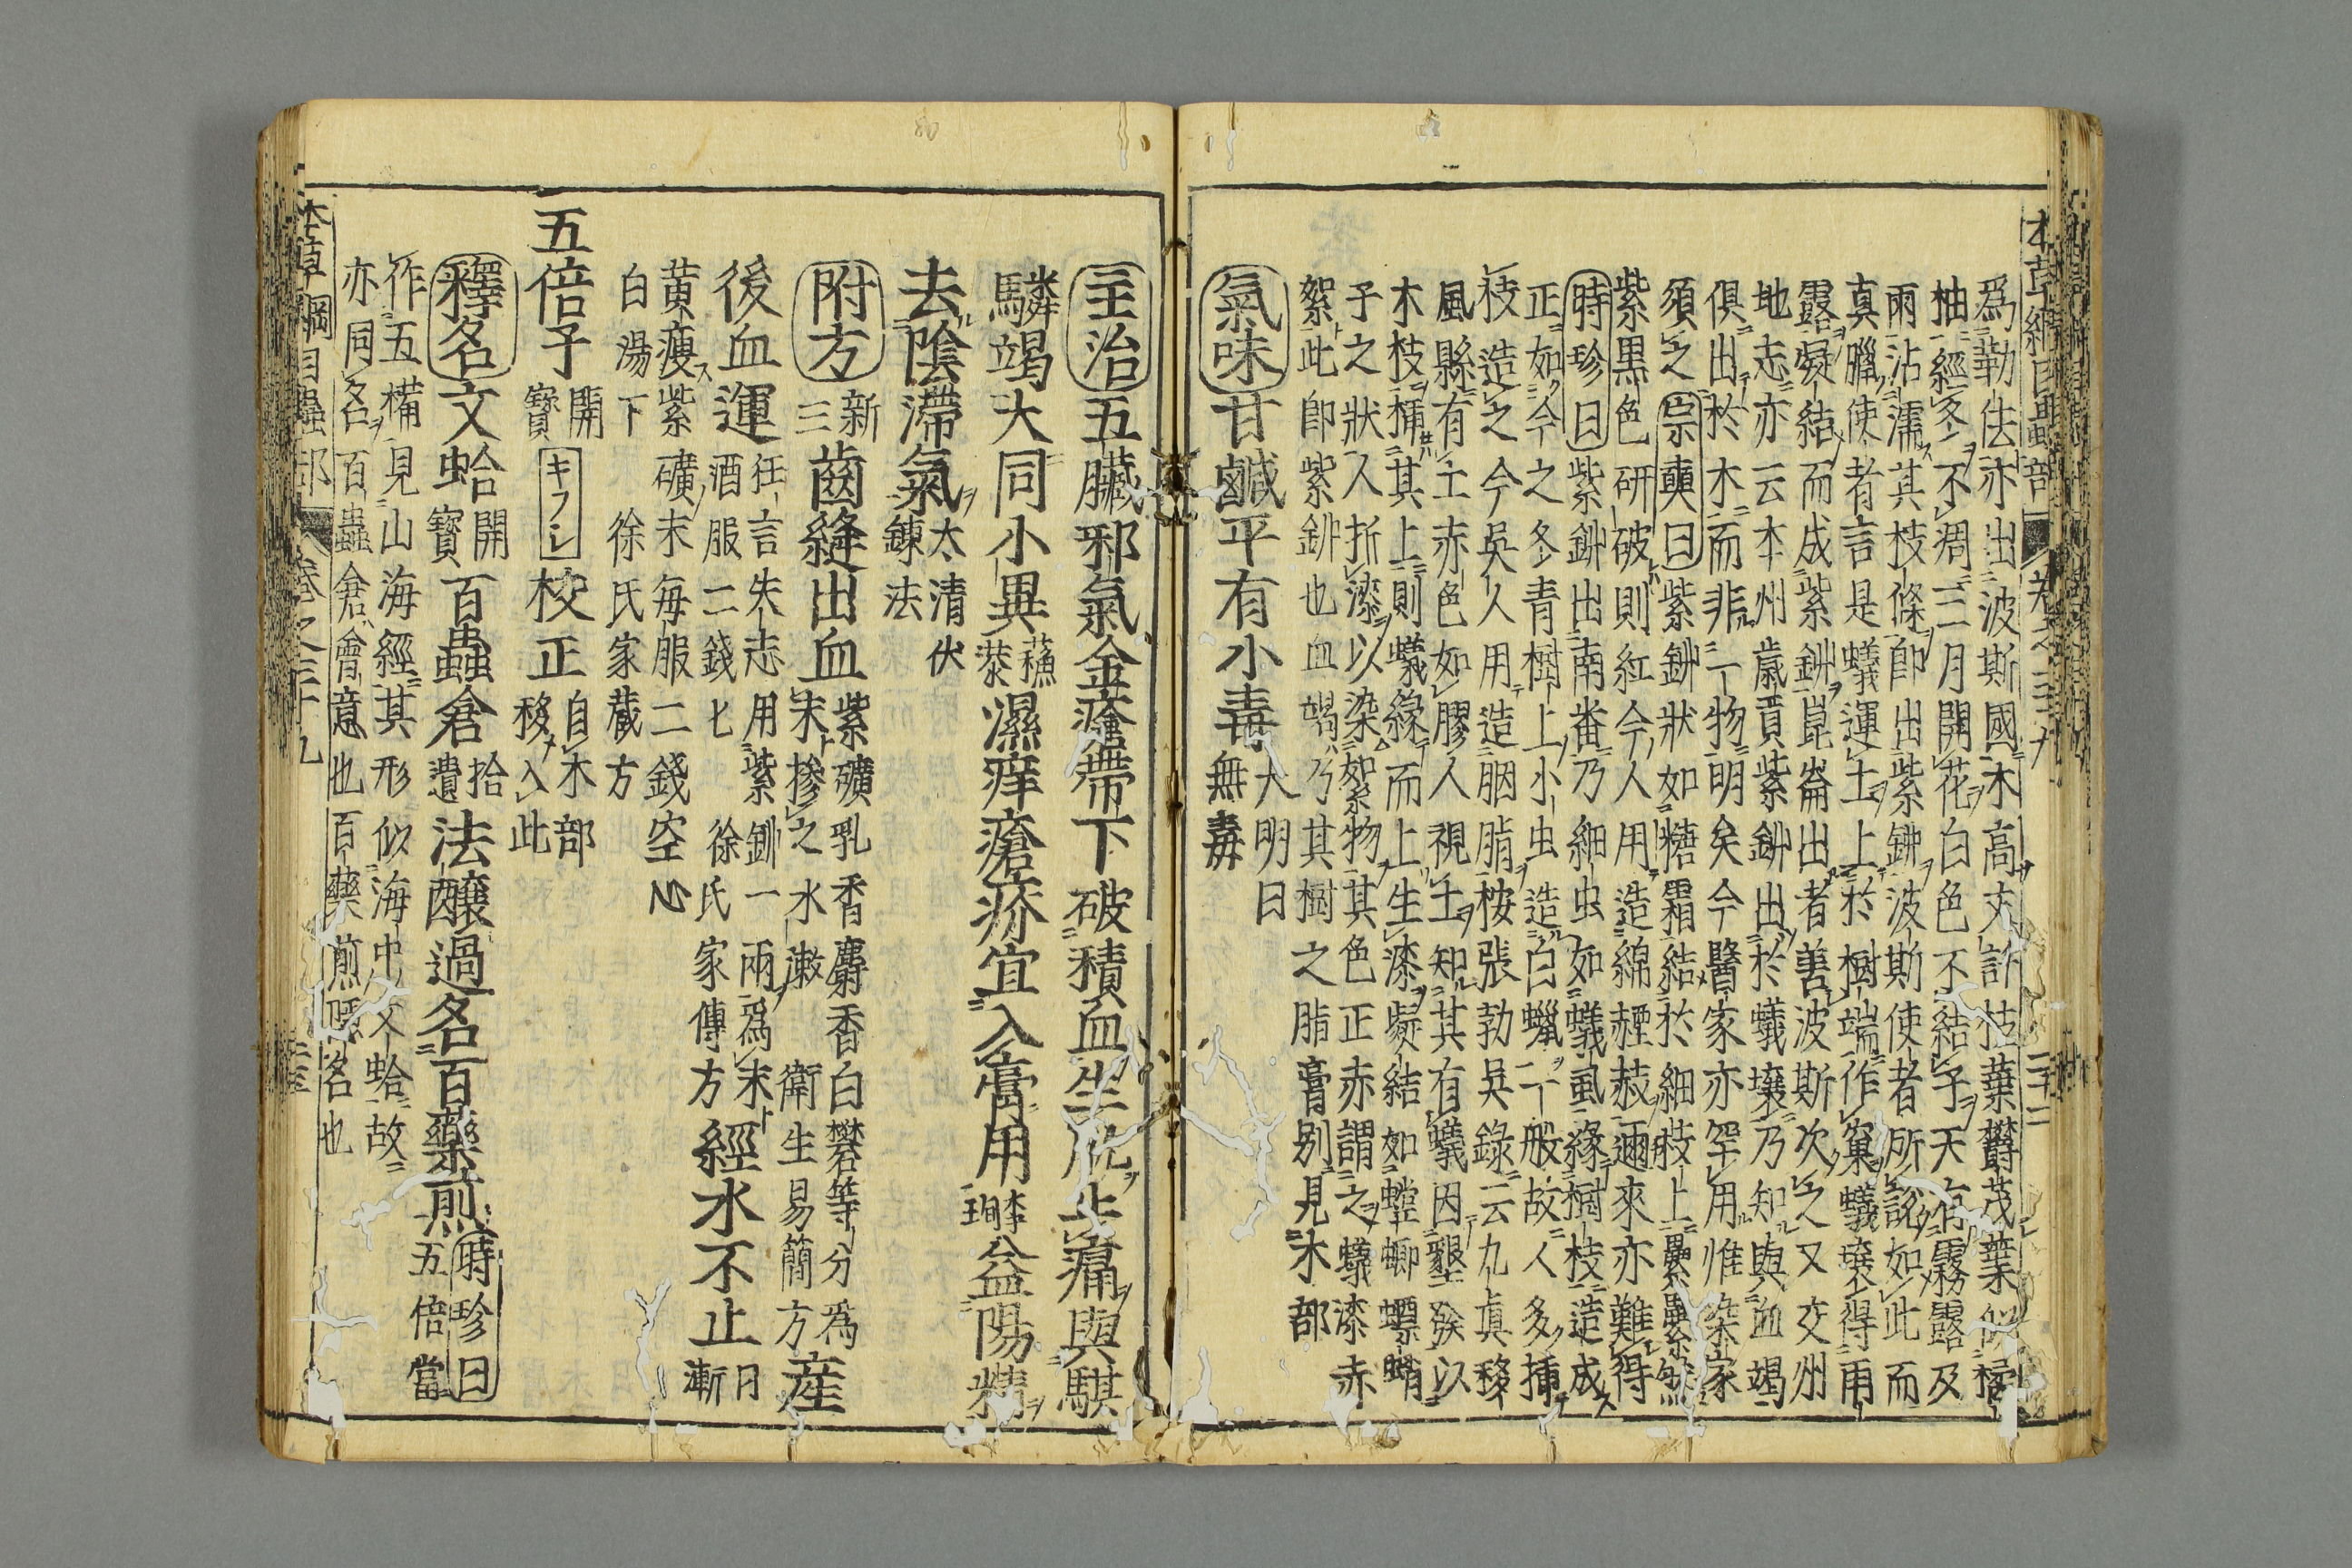 本草綱目蟲部 卷之三十九 二十二
爲勒佉亦出波斯國木高丈許枝葉欝茂葉似橘
柚經冬不凋三月開花白色不結子天有霧露及
雨沾濡其枝條卽出紫鉚波斯使者所説如此而
真臘使者言是蟻運土上於樹端作窠蟻壤得雨
露凝結而成紫鉚崑崙出者善波斯次之又交州
地志亦云本州歲貢紫鉚出於蟻壤乃知與血竭
俱出於木而非一物明矣今醫家亦罕用惟染家
須之宗奭曰紫鉚狀如糖霜結於細枝上纍纍然
紫黒色研破則紅今人用造綿𦋺枝邇來亦難得
時珍曰紫鉚出南畨乃細虫如蟻虱緣樹枝造成
正如今之冬青樹上小虫造白蠟一般故人多揷
枝造之今吳人用造胭脂按張勃吳錄云九真移
風縣有土赤色如膠人視土知其有蟻因墾發以
木枝揷其上則蟻緣而上生漆凝結如螳螂螵蛸
子之狀人折漆以染絮物其色正赤謂之蟻漆赤
絮此卽紫鉚也血竭乃其樹之脂膏别見木部
氣味甘鹹平有小毒大明曰
無毒
主治五臟邪氣金瘡帶下破積血生肌止痛與騏
驎竭大同小異蘇
恭濕痒瘡疥宜入膏用李
珣益陽精
去陰滯氣太清伏
鍊法
附方新
三齒縫出血紫礦乳香麝香白礬等分爲
末摻之水漱 衛生易簡方產
後血運狂言失志用紫鉚一兩爲末
酒服二錢匕 徐氏家傳方經水不止日漸
黄瘦紫礦末每服二錢空心
白湯下 徐氏家藏方
五倍子開
寶キフシ校正自木部
移入此
釋名文蛤開
寶百蟲倉拾
遺法釀過名百藥煎時珍曰
五倍當
作五㯡見山海經其形似海中文蛤故
亦同名百蟲倉會意也百藥煎隱名也
本草綱目蟲部 卷之三十九